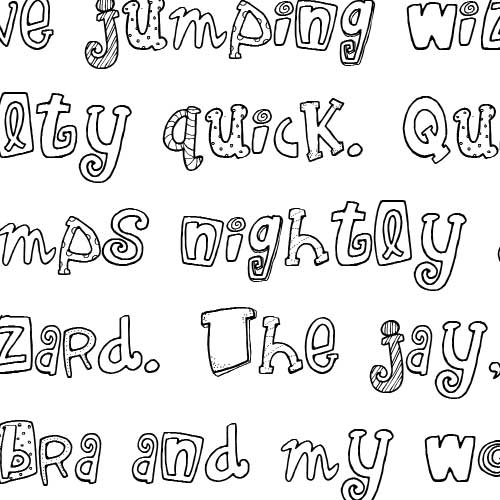 ve jumping wiz
lty quick. Qu
mps nightly
zard. The jay,
bra and my wo